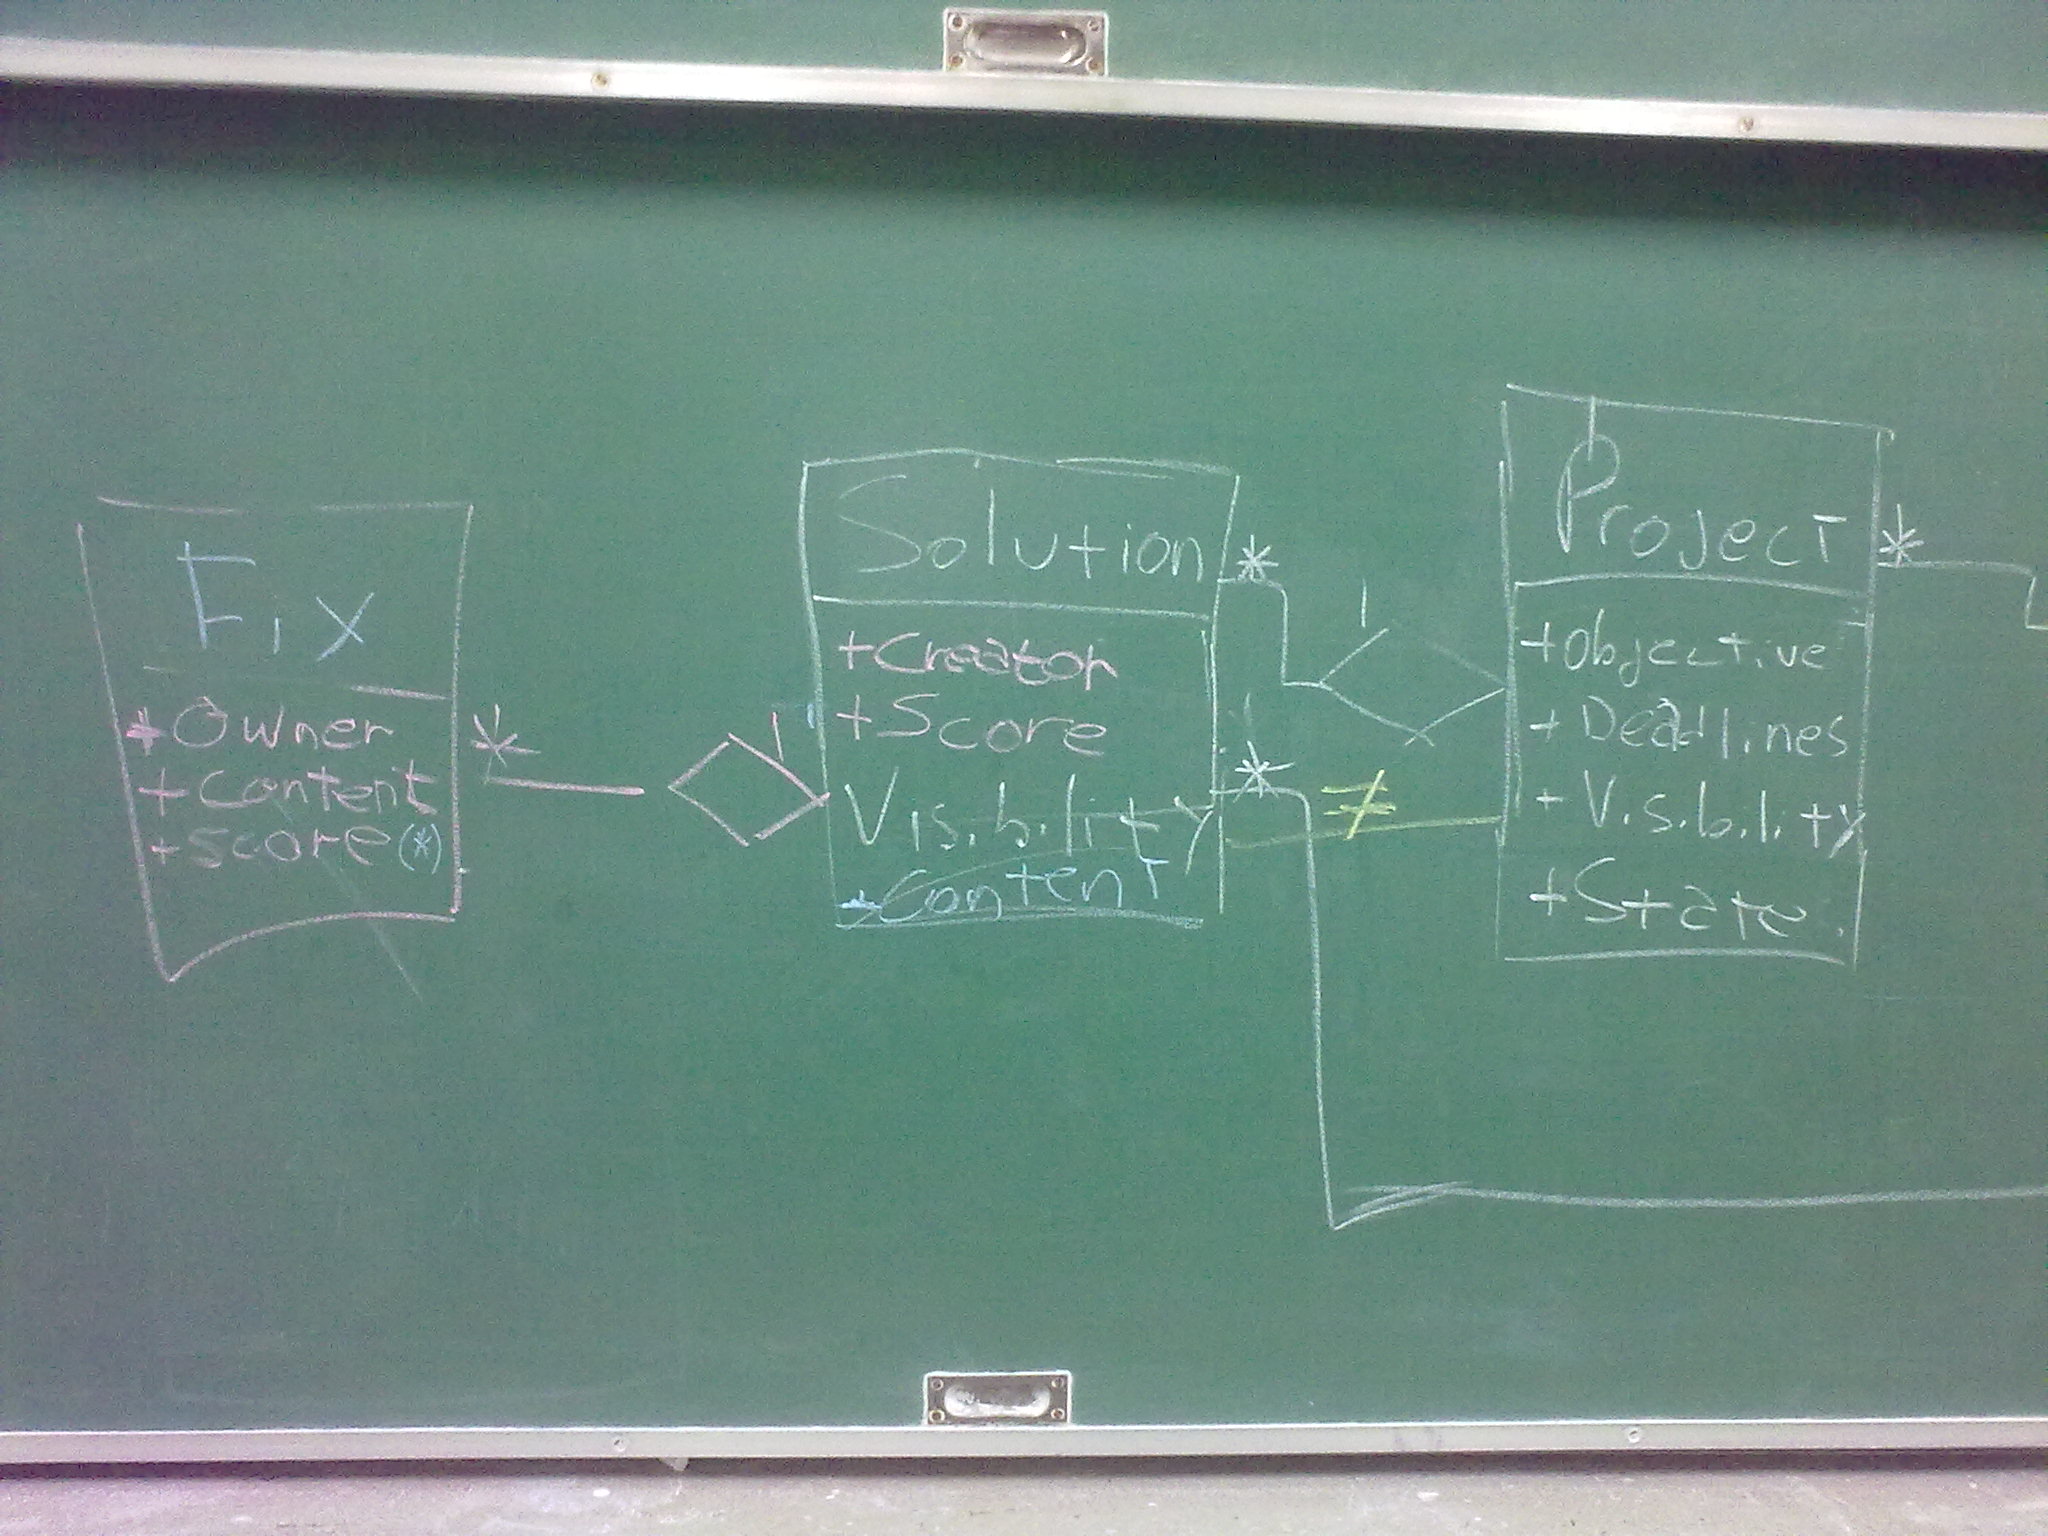 Fix
+Owner
+Content
+Score(*)
*
1
Solution
+Creator
+Score
Visibility
+Content
*
1
*
≠
Project
+Objective
+Deadlines
+Visibility
+State
*